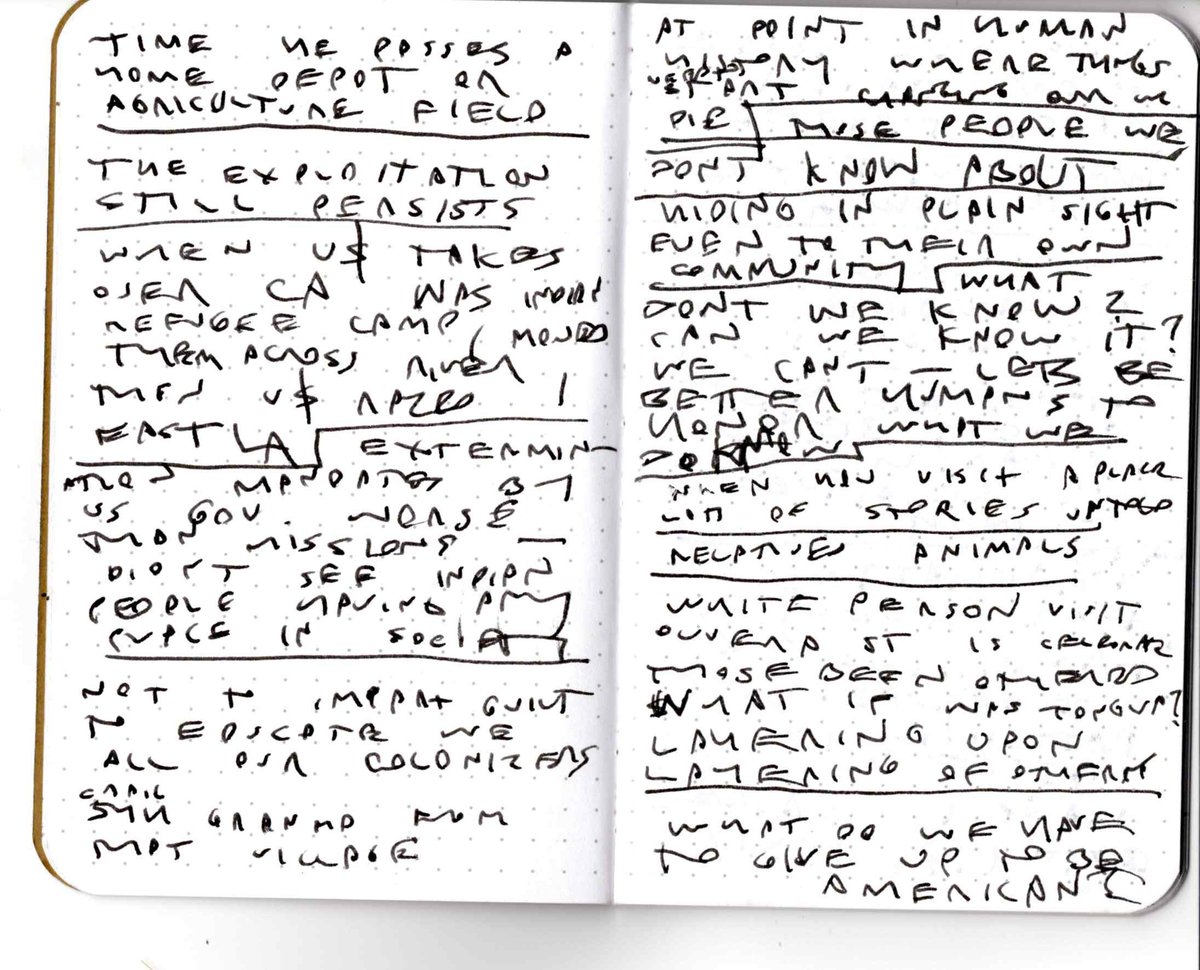 TIME HE PASSES A
HOME DEPOT OR
AGRICULTURE FIELD
THE EXPLOITATION
STILL PERSISTS
WHEN US TAKES
OVER CA WAS INDIAN
REFUGEE CAMP, MOVED
THEM ACROSS RIVER
THEN US RAZED
EAST LA EXTERMIN-
ATION MANDATED BY
US GOV. WORSE
THAN MISSIONS —
DIDN'T SEE INDIAN
PEOPLE HAVING ANY
PLACE IN SOCIETY
NOT TO IMPART GUILT
TO EDUCATE WE
ALL OUR COLONIZERS
GRANMA FROM
THAT VILLAGE
AT POINT IN HUMAN
HISTORY WHERE THINGS
PIE THOSE PEOPLE WE
DONT KNOW ABOUT
HIDING IN PLAIN SIGHT
EVEN TO THEIR OWN
COMMUNITY WHAT
DONT WE KNOW?
CAN WE KNOW IT?
WE CANT — LETS BE
BETTER HUMANS TO
HONOR WHAT WE
DO KNOW
WHEN YOU VISIT A PLACE
LOT OF STORIES UNTOLD
RELATIVES ANIMALS
WHITE PERSON VISIT
OLVERA ST IS
THOSE BEEN OTHERED
WHAT IF WAS TONGVA?
LAYERING UPON
LAYERING OF OTHERS
WHAT DO WE HAVE
TO GIVE UP TO BE
AMERICAN?